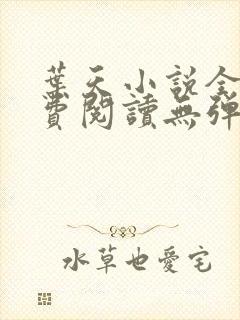 葉天小說全
費閱讀無彈
水草也愛宅